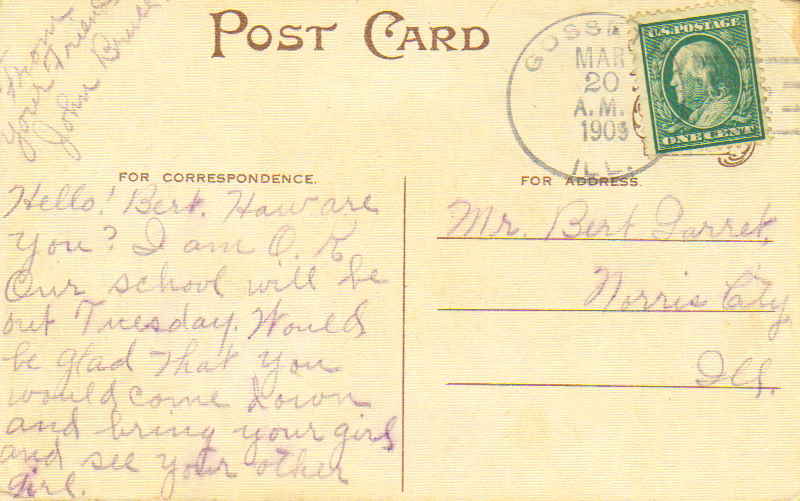 From
your Friend
John Bruce
POST CARD
GOSSE
MAR
20
A.M.
1909
ILL.
U.S. POSTAGE
ONE CENT
FOR CORRESPONDENCE.
FOR ADDRESS.
Hello! Bert. How are
you? I am O.K
Our school will be
out Tuesday. Would
be glad that you
would come down
and bring your girl
and see your other
girl.
Mr. Bert Garret,
Norris City
Ills.